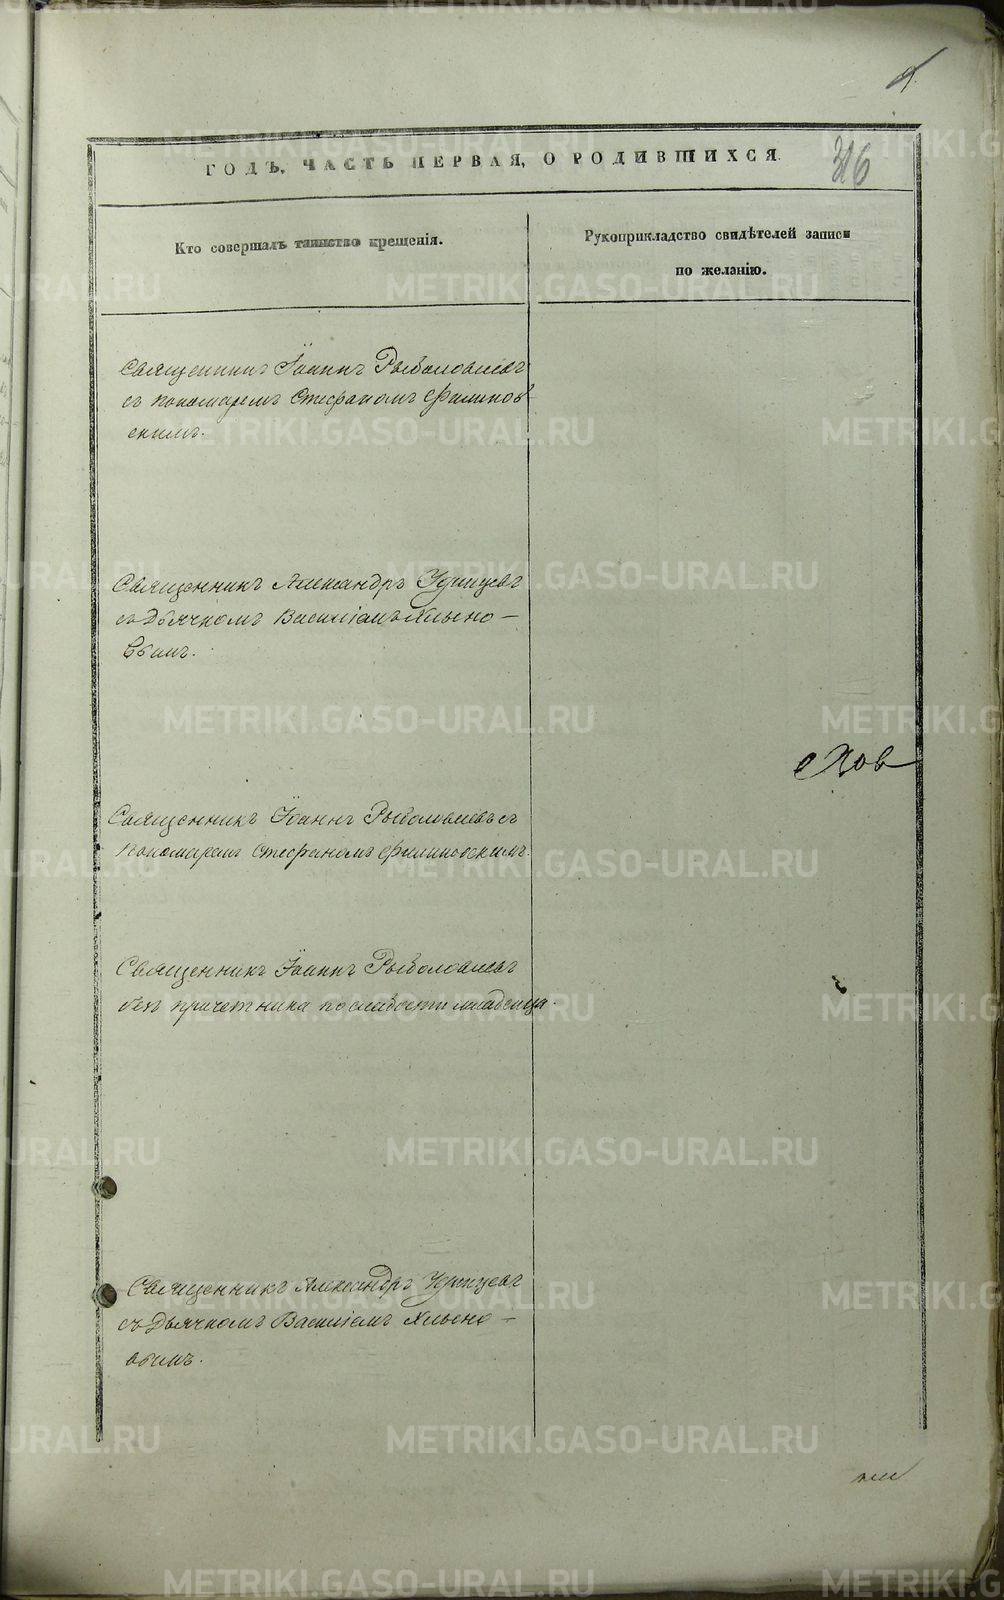 316
ГОДЪ, ЧАСТЬ ПЕРВАЯ, О РОДИВШИХСЯ.
Кто совершалъ таинство крещенія.
Рукоприкладство свидѣтелей записи
по желанію.
Священникъ Іоаннъ Рыболовлевъ
съ пономаремъ Стефаномъ Филипов-
скимъ.
Священникъ Александръ Удинцевъ
съ Дьячкомъ Василіемъ Хлыно-
вымъ.
Священникъ Іоаннъ Рыболовлевъ съ
Пономаремъ Стефаномъ Филиповскимъ.
Священникъ Іоаннъ Рыболовлевъ
безъ причетника по слабости младенца.
Священникъ Александръ Удинцевъ
съ Дьячкомъ Василіемъ Хлыно-
вымъ.
METRIKI.GASO-URAL.RU